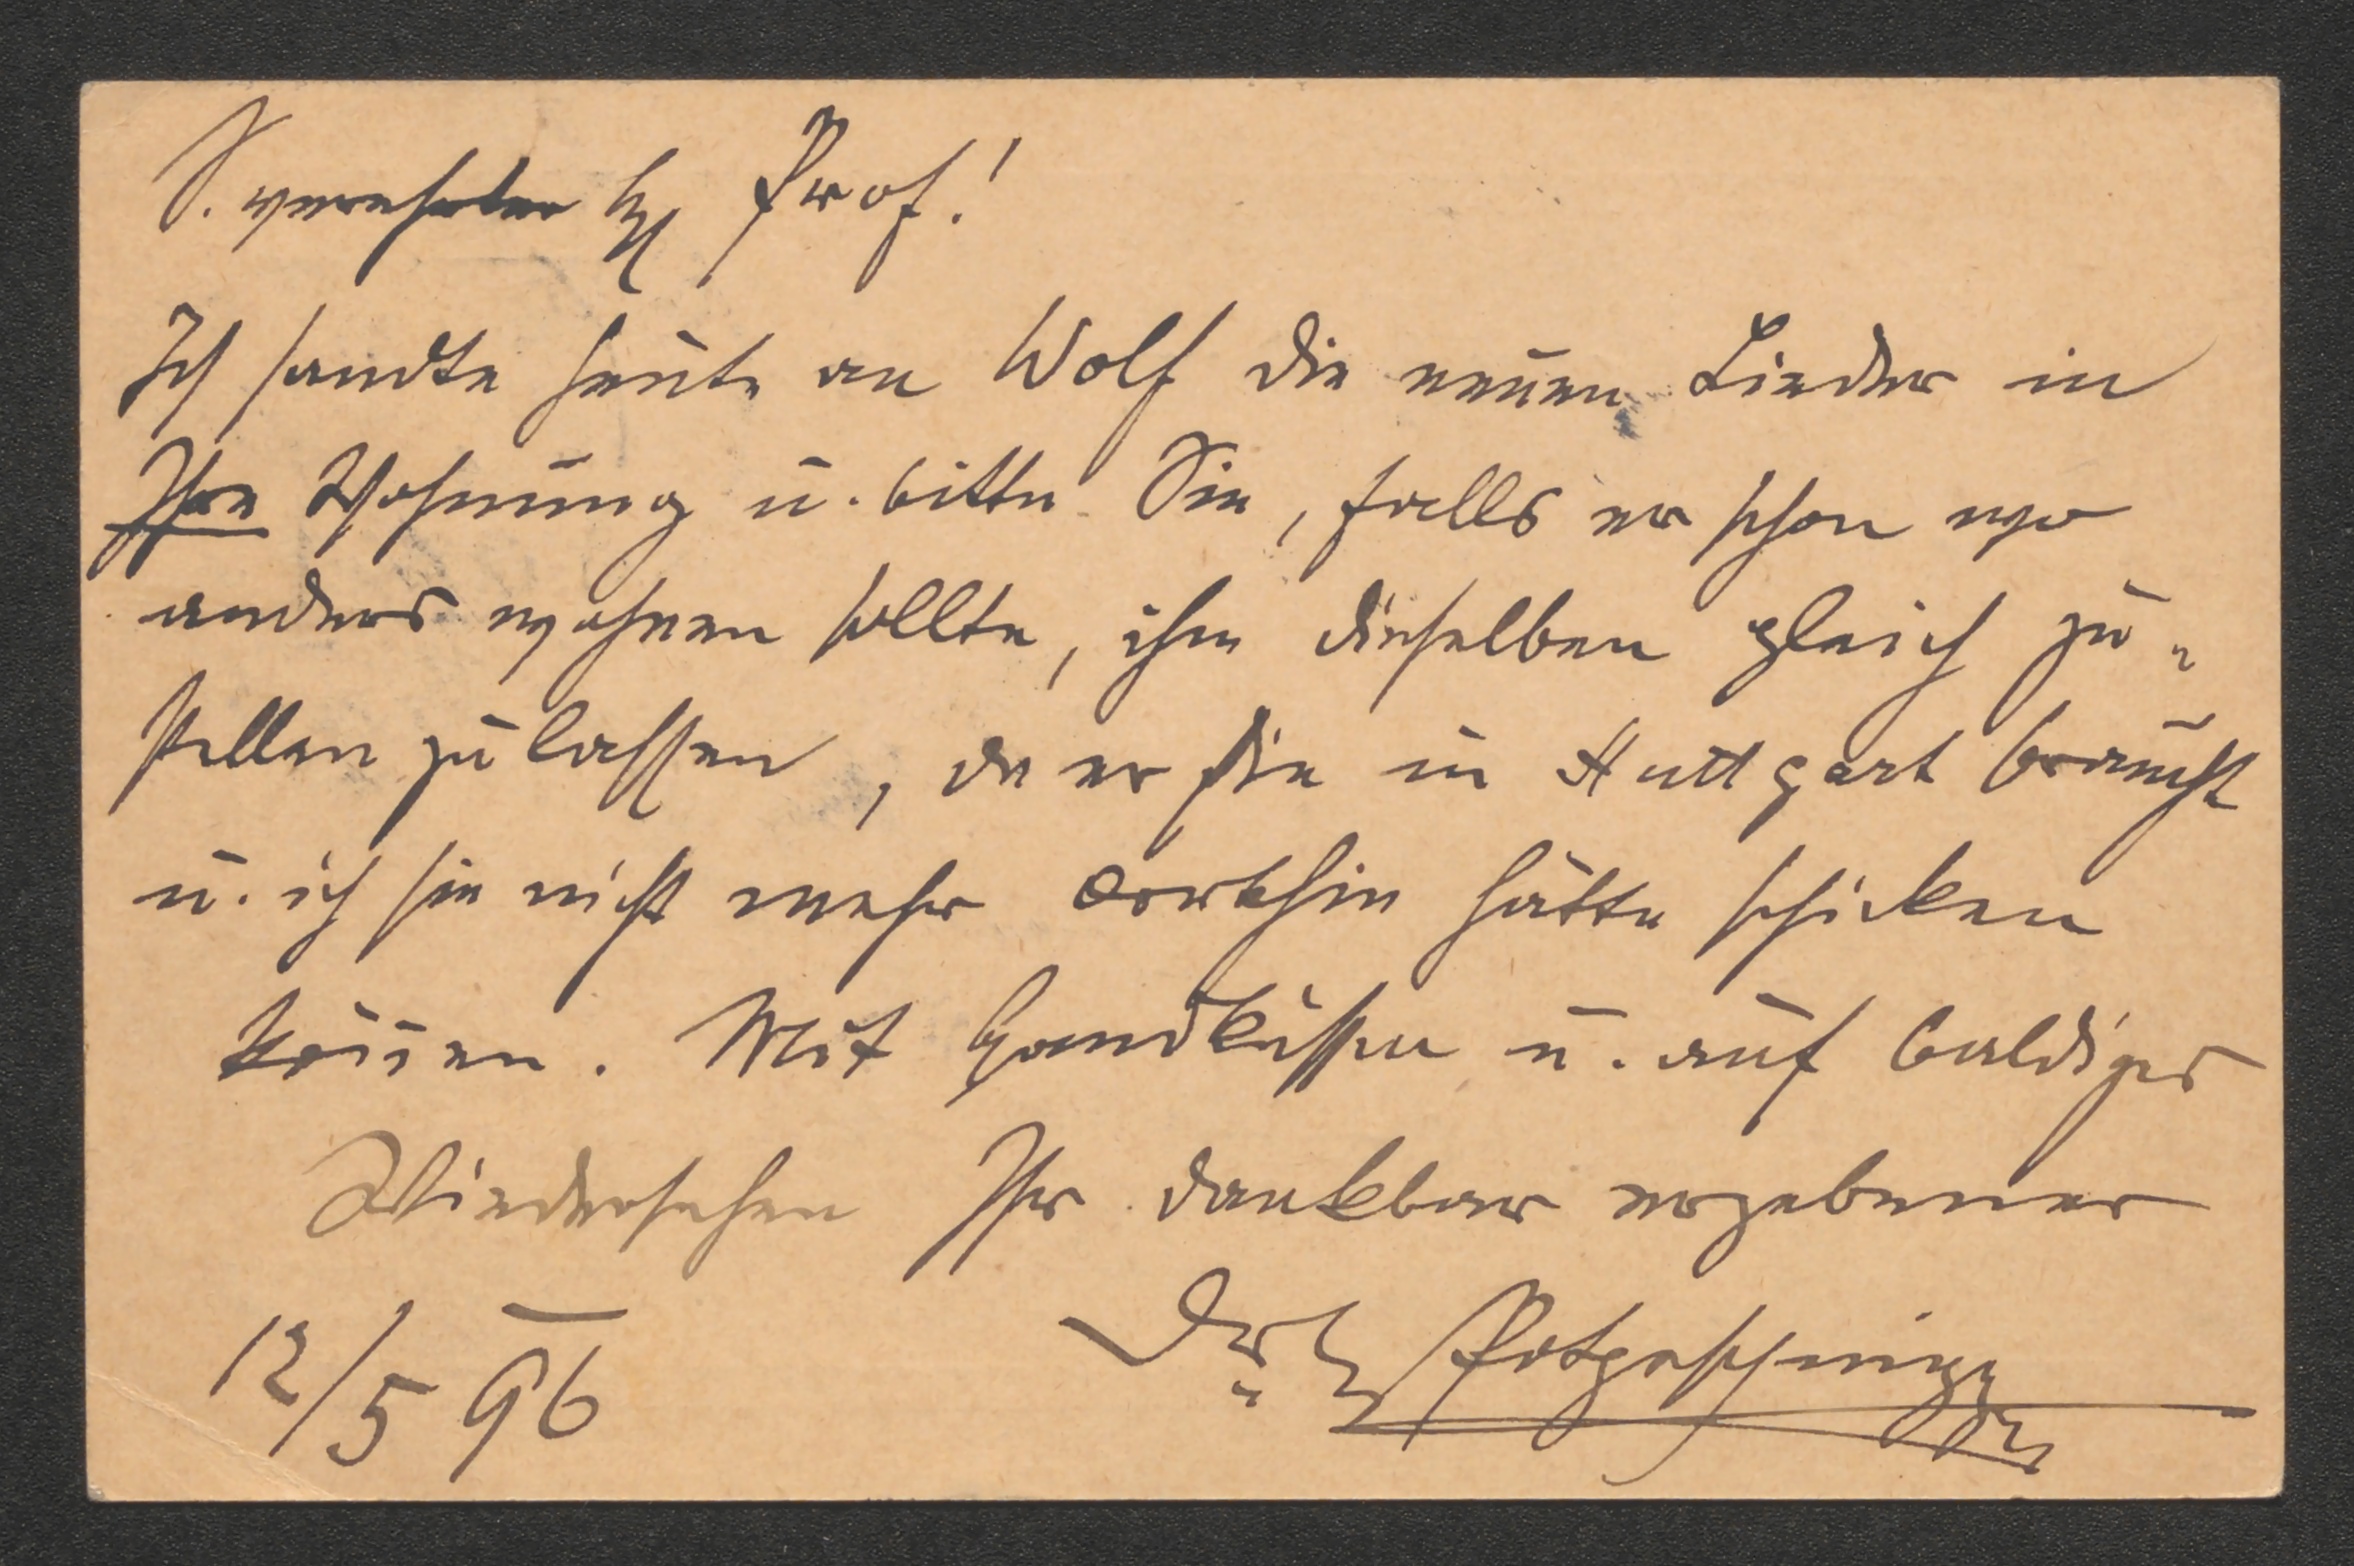 S. verehrter H Prof!
Ich sandte heute an Wolf die neuen Lieder in
Ihre Wohnung u. bitte Sie, falls er schon wo
anders wohnen sollte, ihm dieselben gleich zu-
stellen zu lassen, da er sie in Stuttgart braucht
u. ich sie nicht mehr dorthin hätte schicken
können. Mit Handküssen u. auf baldiges
Wiedersehen Ihr dankbar ergebener
12/5 96 Dr H Potpeschnigg